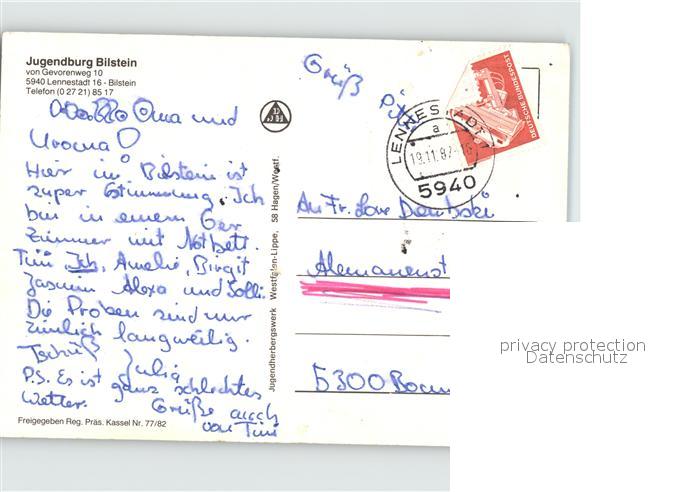 Jugendburg Bilstein
von Gevorenweg 10
5940 Lennestadt 16 - Bilstein
Telefon (0 27 21) 85 17
Oma und
Uroma
Hier in Bilstein ist
super Stimmung. Ich
bin in einem 6er
Zimmer mit Notbett.
Tini, Ich, Amelie, Birgit
Jasmin Alexa und
Die Proben sind nur
ziemlich langweilig.
Tschüß Julia
P.S. Es ist ganz schlechtes
Wetter. Grüße auch
von Tini
Freigegeben Reg. Präs. Kassel Nr. 77/82
Jugendherbergswerk Westfalen-Lippe, 58 Hagen/Westf.
Grüß
DEUTSCHE BUNDESPOST
LENNESTADT
a
19.11.82
5940
An Fr.
5300 Bonn
privacy protection
Datenschutz